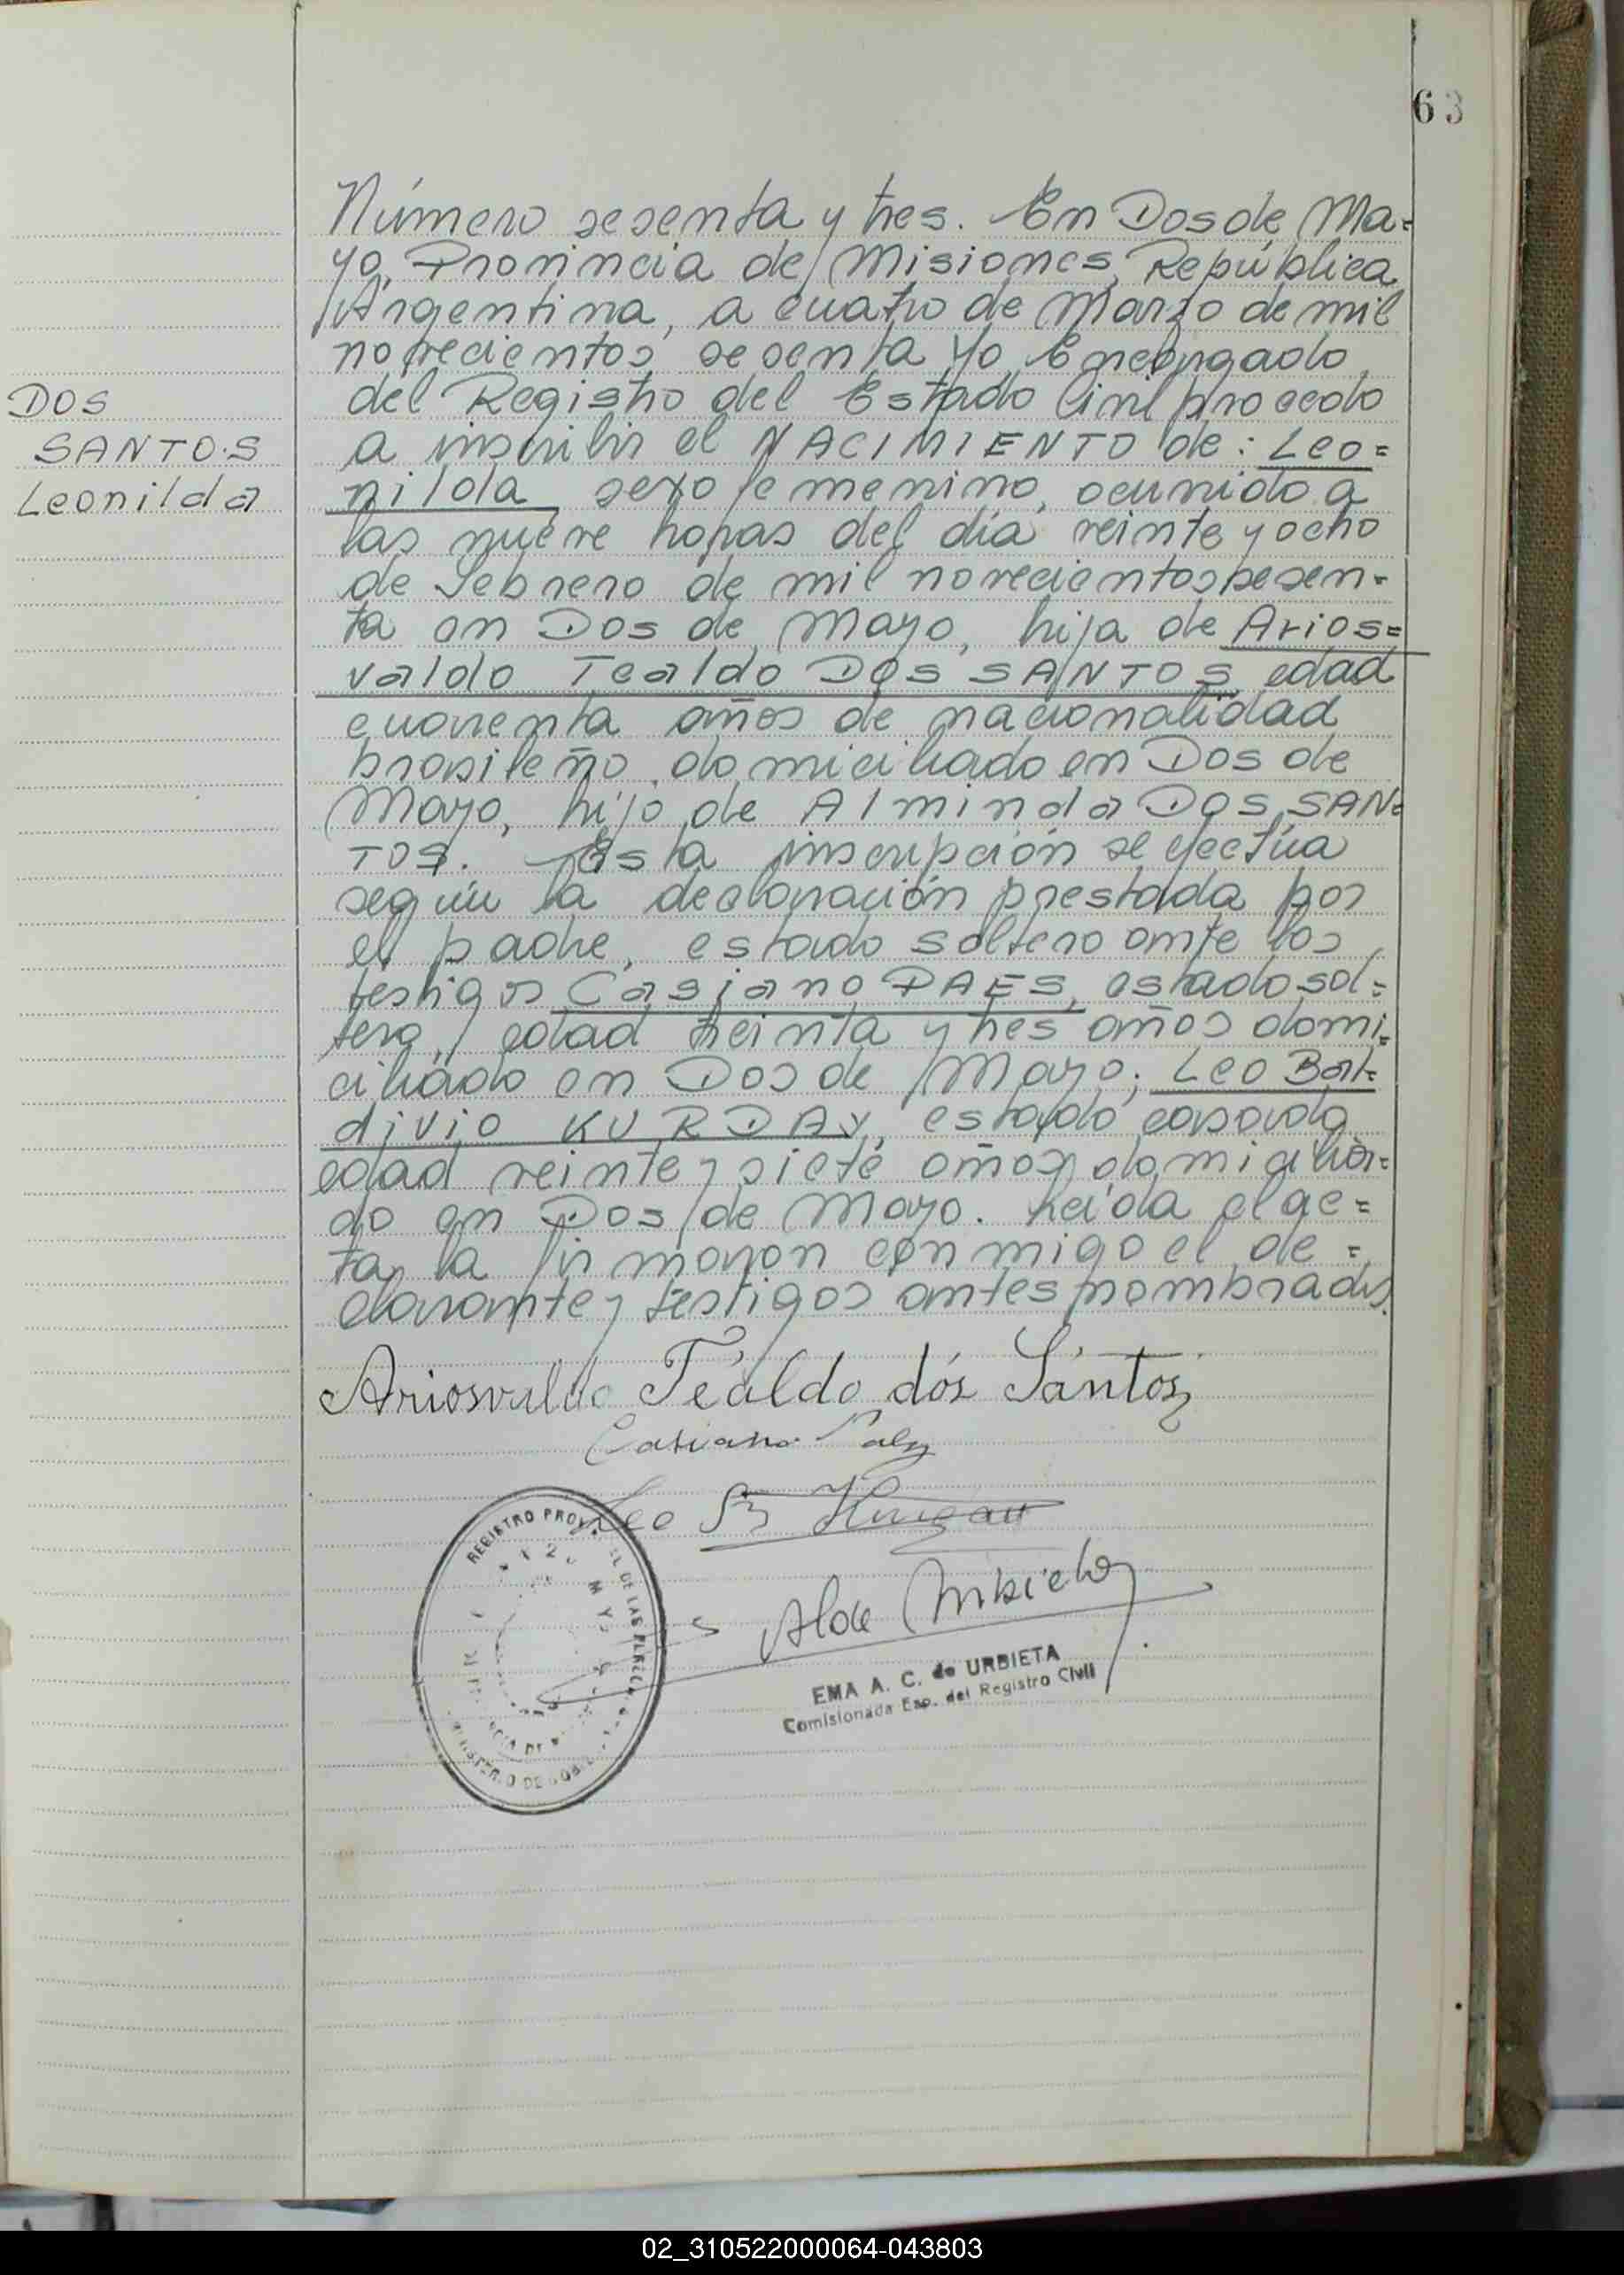 63
Número sesenta y tres. En Dos de Ma=
yo, Provincia de Misiones, República
Argentina, a cuatro de Marzo de mil
novecientos sesenta Yo, Encargado
del Registro del Estado Civil procedo
a inscribir el NACIMIENTO de: Leo=
nilda sexo femenino, ocurrido a
las nueve horas del día veinte y ocho
de Febrero de mil novecientos sesen-
ta en Dos de Mayo, hija de Arios=
valdo Tealdo DOS SANTOS edad
cuarenta años de nacionalidad
brasileño, domiciliado en Dos de
Mayo, hijo de Alminda DOS SAN=
TOS. Esta inscripción se efectúa
según la declaración prestada por
el padre, estado soltero ante los
testigos Casiano PAES, estado sol=
tero, edad treinta y tres años domi=
ciliado en Dos de Mayo; Leo Bal=
divio KURDAY, estado casado
edad veinte y siete años, domicilia=
do en Dos de Mayo. Leída el ac=
ta, la firmaron conmigo el de=
clarante y testigos antes nombrados.
DOS
SANTOS
Leonilda
Ariosvaldo Téaldo dós Sántos
Casiano Paes
Leo B
REGISTRO PROV DE LAS
MINISTERIO DE GOB
EMA A. C. de URBIETA
Comisionada Esp. del Registro Civil
02_310522000064-043803